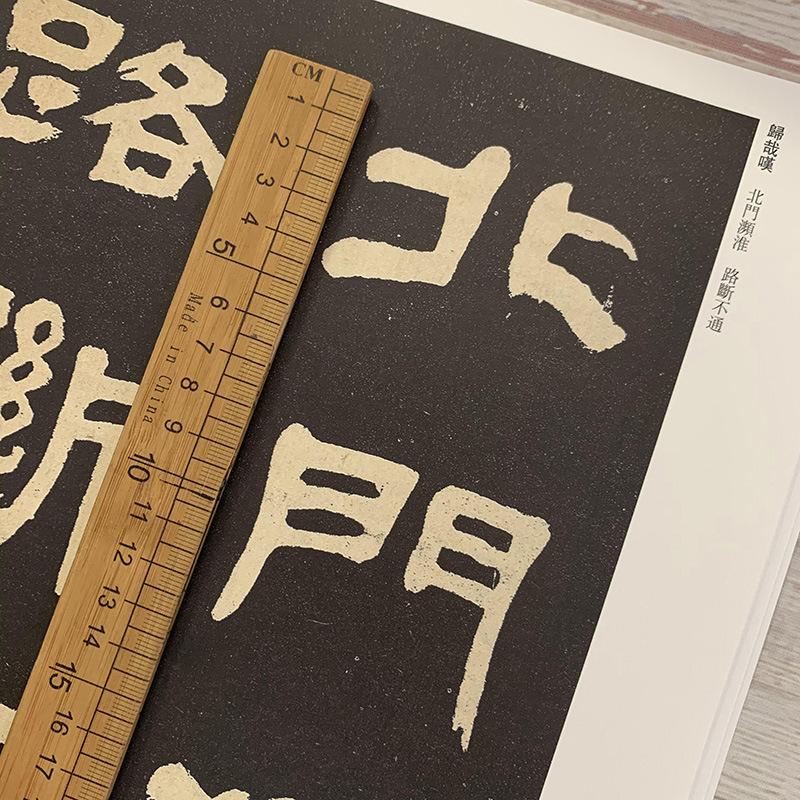 歸哉嘆 北門瀕淮 路斷不通
北門
路斷
CM
1 2 3 4 5 6 7 8 9 10 11 12 13 14 15 16 17
Made in China